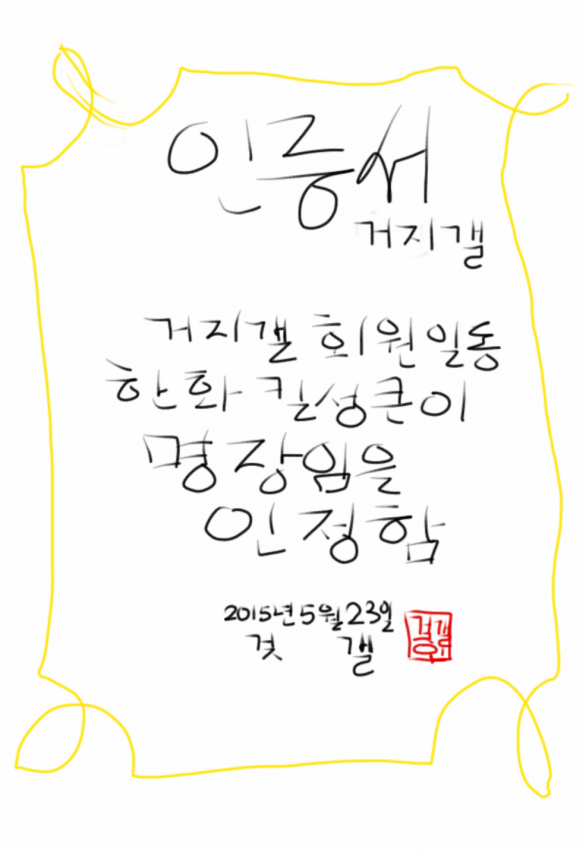 인증서
거지갤
거지갤 회원일동
한화 킬성큰이
명장임을
인정함
2015년 5월 23일
겆 갤